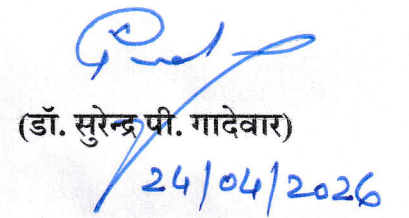 (डॉ. सुरेन्द्र पी. गादेवार)
24/04/2026